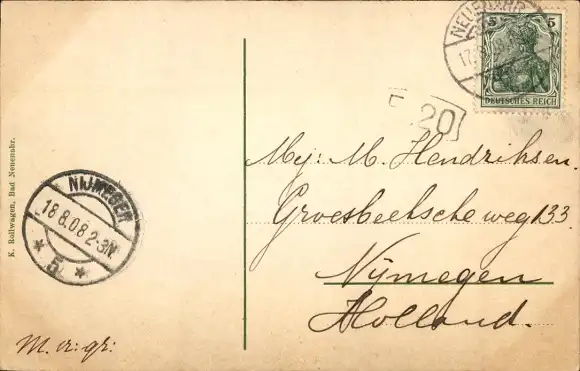 NEUENAHR
17.8.08
5 5
DEUTSCHES REICH
20
Mej: M. Hendriksen.
Groesbeeksche weg 133.
Nijmegen
Holland.
NIJMEGEN
18.8.08 2-3N.
* 5 *
K. Rollwagen, Bad Neuenahr.
M. vr: gr: